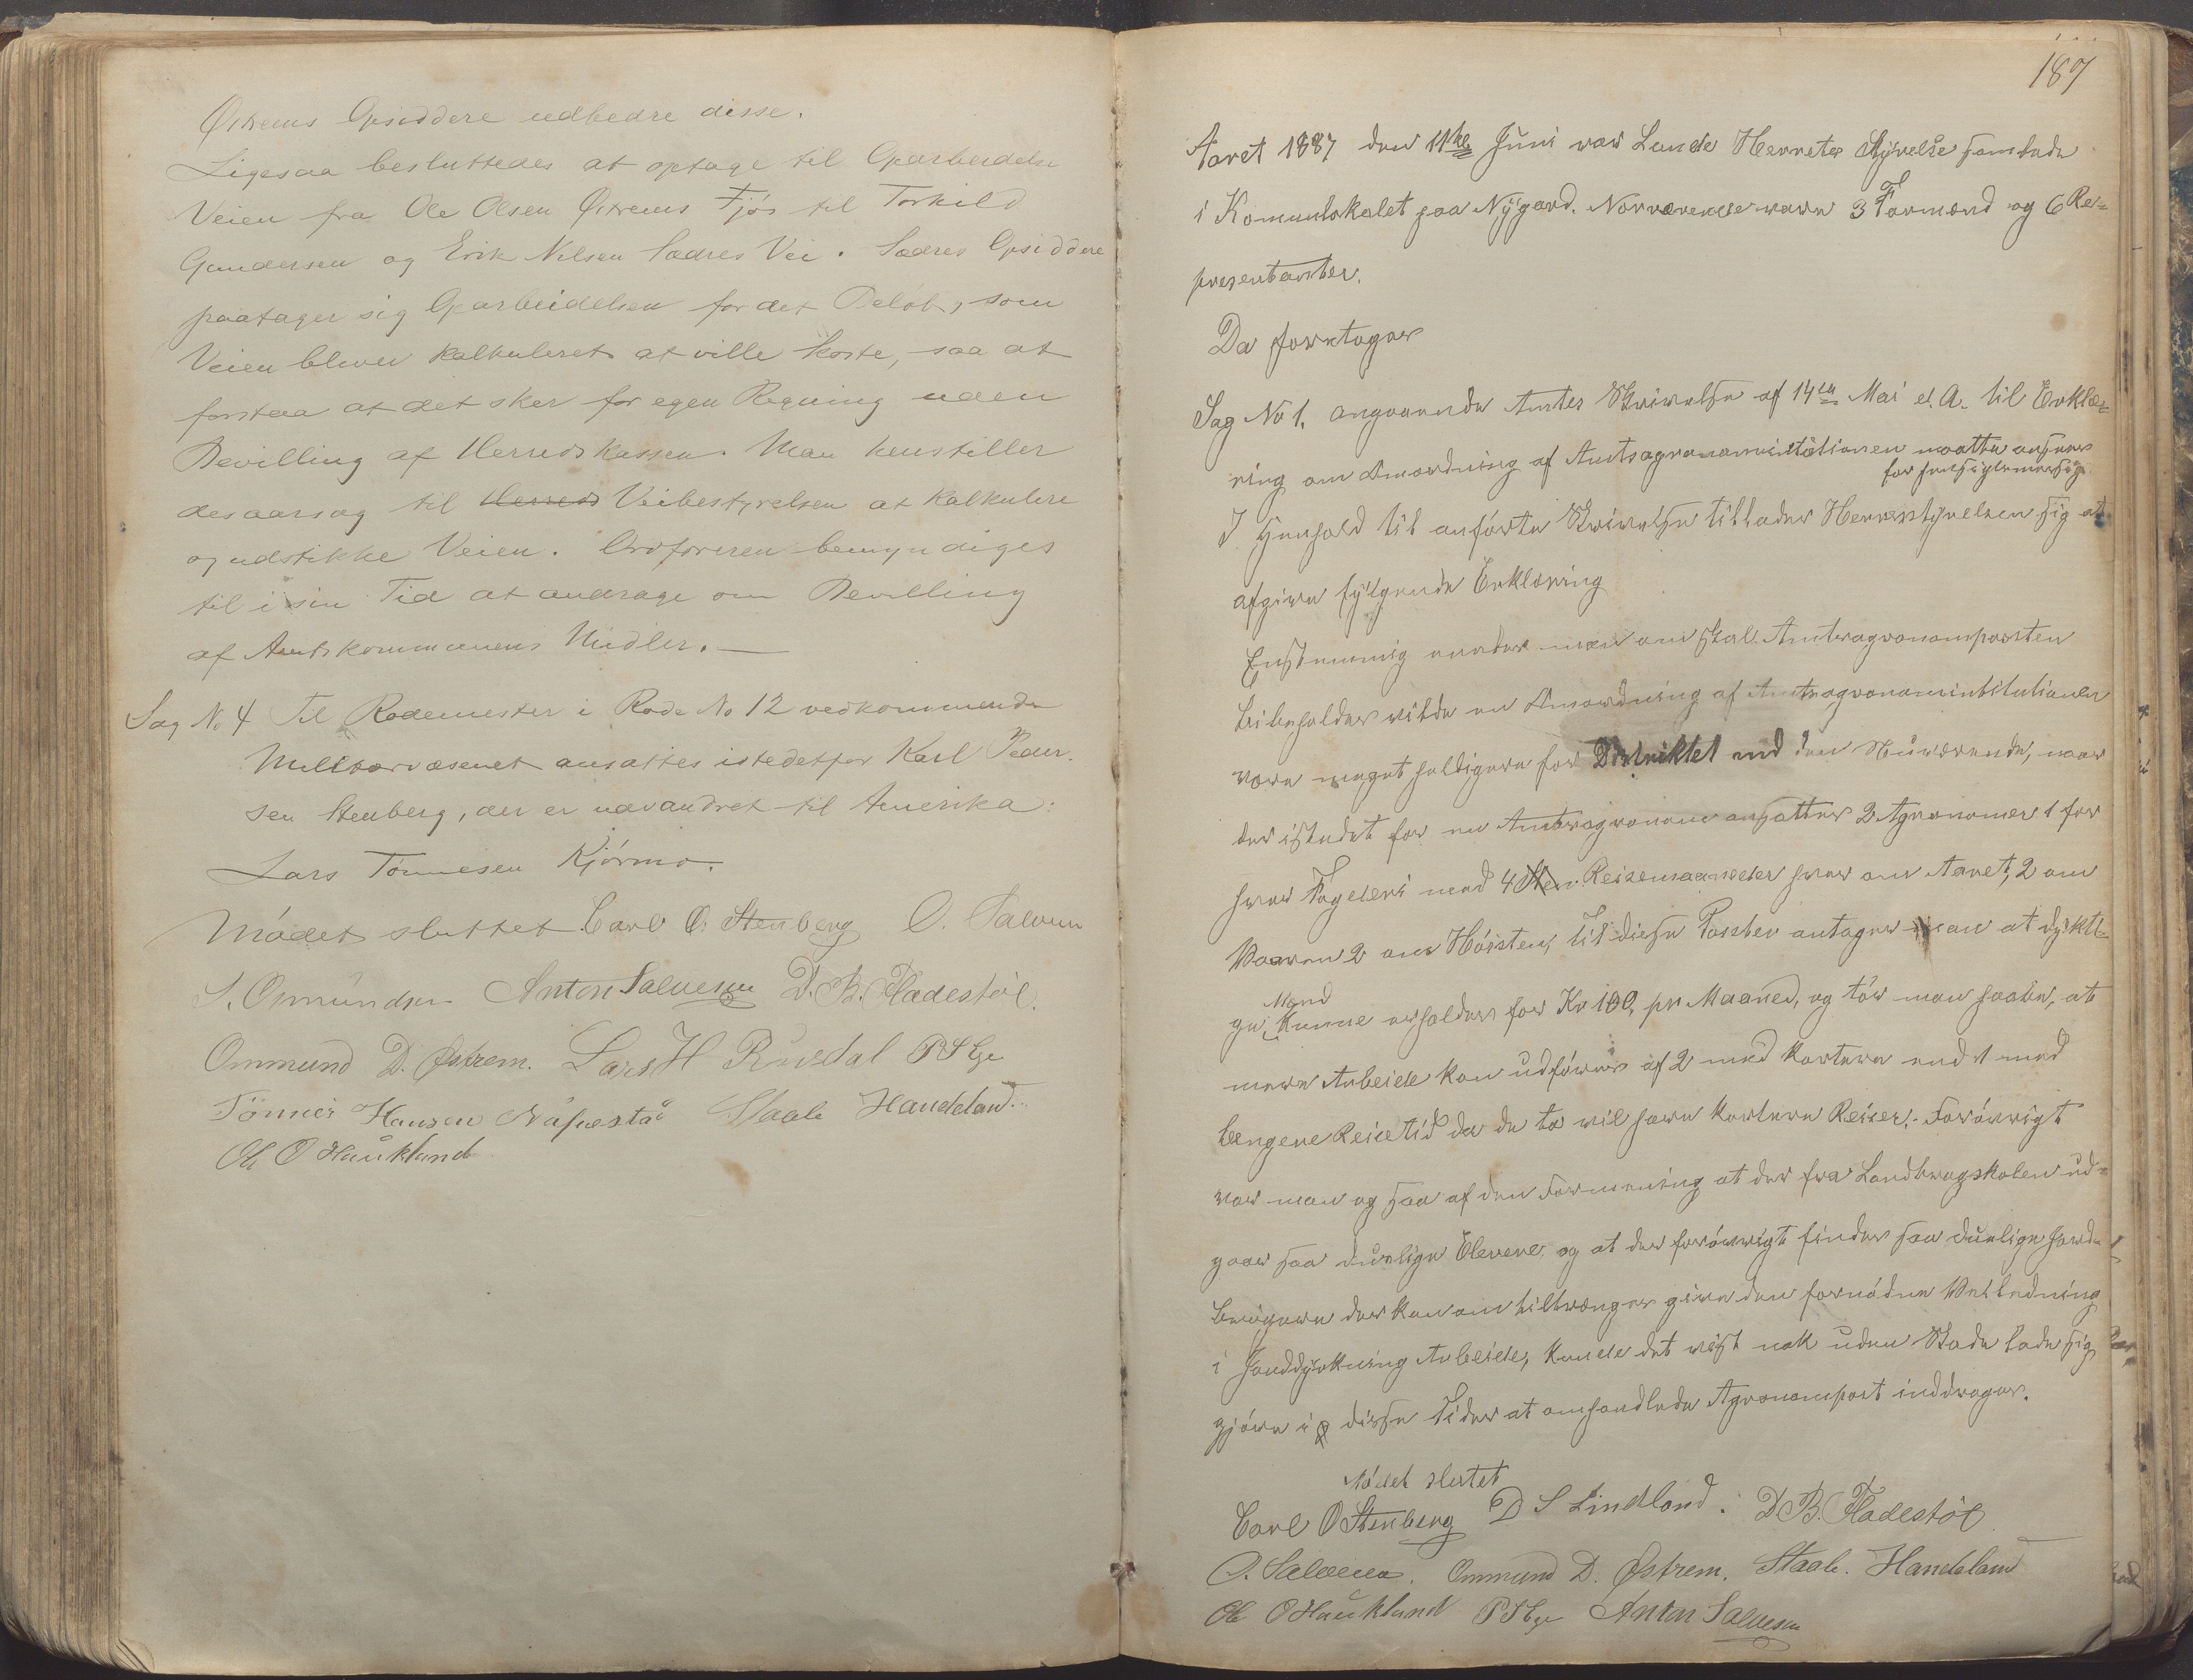 Østrems Opsiddere udbedre disse.
Ligesaa besluttedes at optage til Oparbeidelse
Veien fra Ole Olsen Østrems Fjøs til Torkild
Gundersen og Erik Nilsen Sædres Vei. Sædres Opsiddere
paatager sig Oparbeidelsen for det Beløb, som
Veien bliver kalkuleret at ville koste, saa at
forstaa at det sker for egen Regning uden
Bevilling af Herredskassen. Man henstiller
desaarsag til Herreds Veibestyrelsen at kalkulere
og udstikke Veien. Ordføreren bemyndiges
til i sin Tid at andrage om Bevilling
af Amtskommunens Midler. —
Sag No 4 Til Rodemester i Rode No 12 vedkommende
Militærvæsenet ansattes istedetfor Karl Peder-
sen Stenberg, der er udvandret til Amerika:
Lars Tønnesen Kjørmo.
Mødet sluttet. Carl O. Stenberg O. Salvesen
S. Ommundsen Anton Salvesen D. B. Fladestøl.
Ommund D. Østrem. Lars H Rusdal
Tönnes Hansen Staale Handeland.
Ole O Haukland
187
Aaret 1887 den 11te Juni var Lunde Herrets Styrelse samlede
i Komunlokalet paa Nygard. Nærværende vare 3 Formænd og 6 Re-
presentanter.
Da foretages
Sag No 1. angaaende Amtes Skrivelse af 14de Mai d. A. til Erklæ-
ring om Omordning af Amtsagronominstitutionen maatte ansees
for hensigtsmæssig.
I Henhold til anførte Skrivelse tillader Herrestyrelsen sig at
afgive følgende Erklæring
Enstemmig man om skal Amtsagronomposten
beibeholdes vilde en Omordning af Amtsagronominstitutionen
være meget heldigere for Distriktet end den Nuværende, naar
der istedet for en Amtsagronom ansattes 2 Agronomer 1 for
hver Fogderi med 4 Reisemaaneder hver om Aaret, 2 om
Vaaren 2 om Høisten, til disse Poster antager man at dykti-
Mænd
ge kunne erholdes for Kr 100, pr Maaned, og tør man haabe, at
mere Arbeide kan udføres af 2 med kortere end 1 med
længere Reisetid da de to vil have kortere Reiser;- Forøvrigt
var man og saa af den Formening at der fra Landbrugskolen ud-
gaar saa duelige Elevere, og at der forøvrigt findes saa duelige Jord-
brugere der kan om tiltrænges give den fornødne Veiledning
i Jorddyrkning Arbeide, kunde det vist nok uden Skade lade sig
gjøre i disse Tider at omhandlede Agronompost inddrages.
Mødet slutet
Carl O Stenberg D S Lindland. D B. Fladestøl
O. Salvesen. Ommund D. Østrem. Staale. Handeland
Ole O Haukland Anton Salvesen